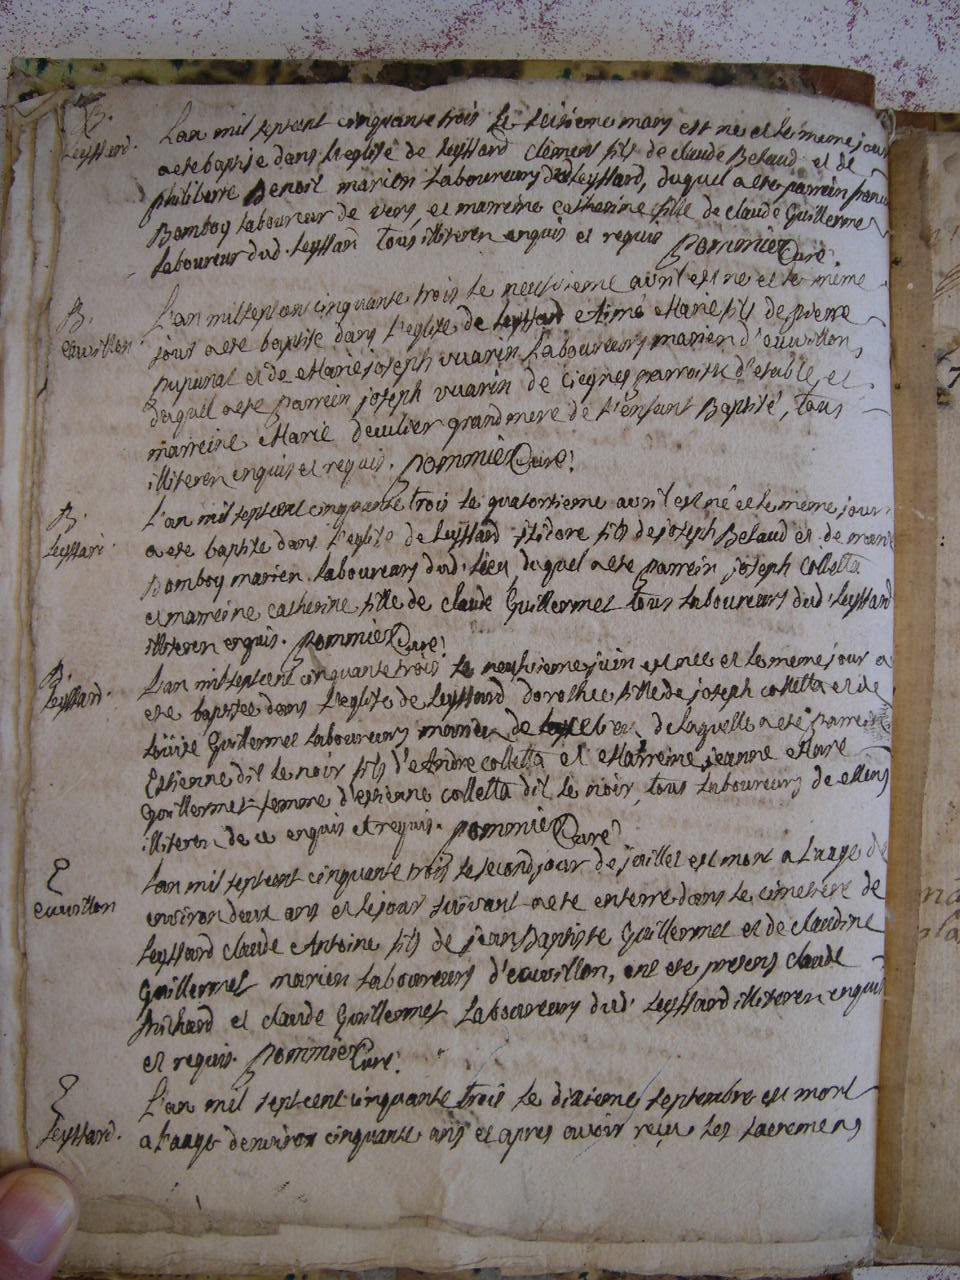 B.
Leyssard.
L'an mil septcent cinquante trois le seisieme mars est né et le meme jour
a eté baptisé dans l'eglise de Leyssard Clement fils de Claude Belaud et de
philiberte Benoit marien laboureurs de Leyssard, duquel a eté parrein
Bomboy laboureur de vers, et marreine catherine fille de Claude Guillermet
laboureur dud. Leyssard tous illiteren enquis et requis pommier Curé
B.
L'an mil septcent cinquante trois le neufvieme avril est né et le même
jour a eté baptisé dans l'eglise de Leyssard Aimé Marie fils de pierre
pupunat et de Marie joseph vuarin laboureurs marien d'euvillon,
duquel a eté parrein joseph vuarin de Ciegnes parroisse d'etable, et
marreine Marie decutier grand mere de l'enfant Baptisé, tous
illiteren enquis et requis. pommier Curé.
B.
Leyssard.
L'an mil septcent cinquante trois le quatorsieme avril est né et le meme jour
a eté baptisé dans l'eglise de Leyssard isidore fils de joseph Belaud et de marie
Bomboy marien laboureurs dud. Lieu, duquel a eté parrein joseph Colletta
et marreine catherine fille de claude Guillermet tous laboureurs dud. Leyssard
illiteren enquis. pommier Curé.
B.
Leyssard.
L'an mil septcent cinquante trois le neufvieme juin est née et le meme jour a
eté baptisée dans l'eglise de Leyssard dorothée fille de joseph colletta et de
Loüise Guillermet laboureurs de laquelle a eté parrein
Estienne dit le noir fils d'Andre colletta et Marreine jeanne Mare
Guillermet femme d'estienne colletta dit le noir, tous laboureurs de
illiteren de ce enquis et requis. pommier Curé
euvillon
L'an mil septcent cinquante trois le second jour de juillet est mort a l'aage de
environ deux ans et le jour suivant a eté enterré dans le cimetiere de
Leyssard claude Antoine fils de jean Baptiste Guillermet et de claudine
Guillermet marien laboureurs d'euvillon, ont eté presens claude
et claude Guillermet laboureurs dud. Leyssard illiteren enquis
et requis. pommier Curé.
Leyssard.
L'an mil septcent cinquante trois le dixieme septembre est mort
a l'aage d'environ cinquante ans et apres avoir reçu les sacremens